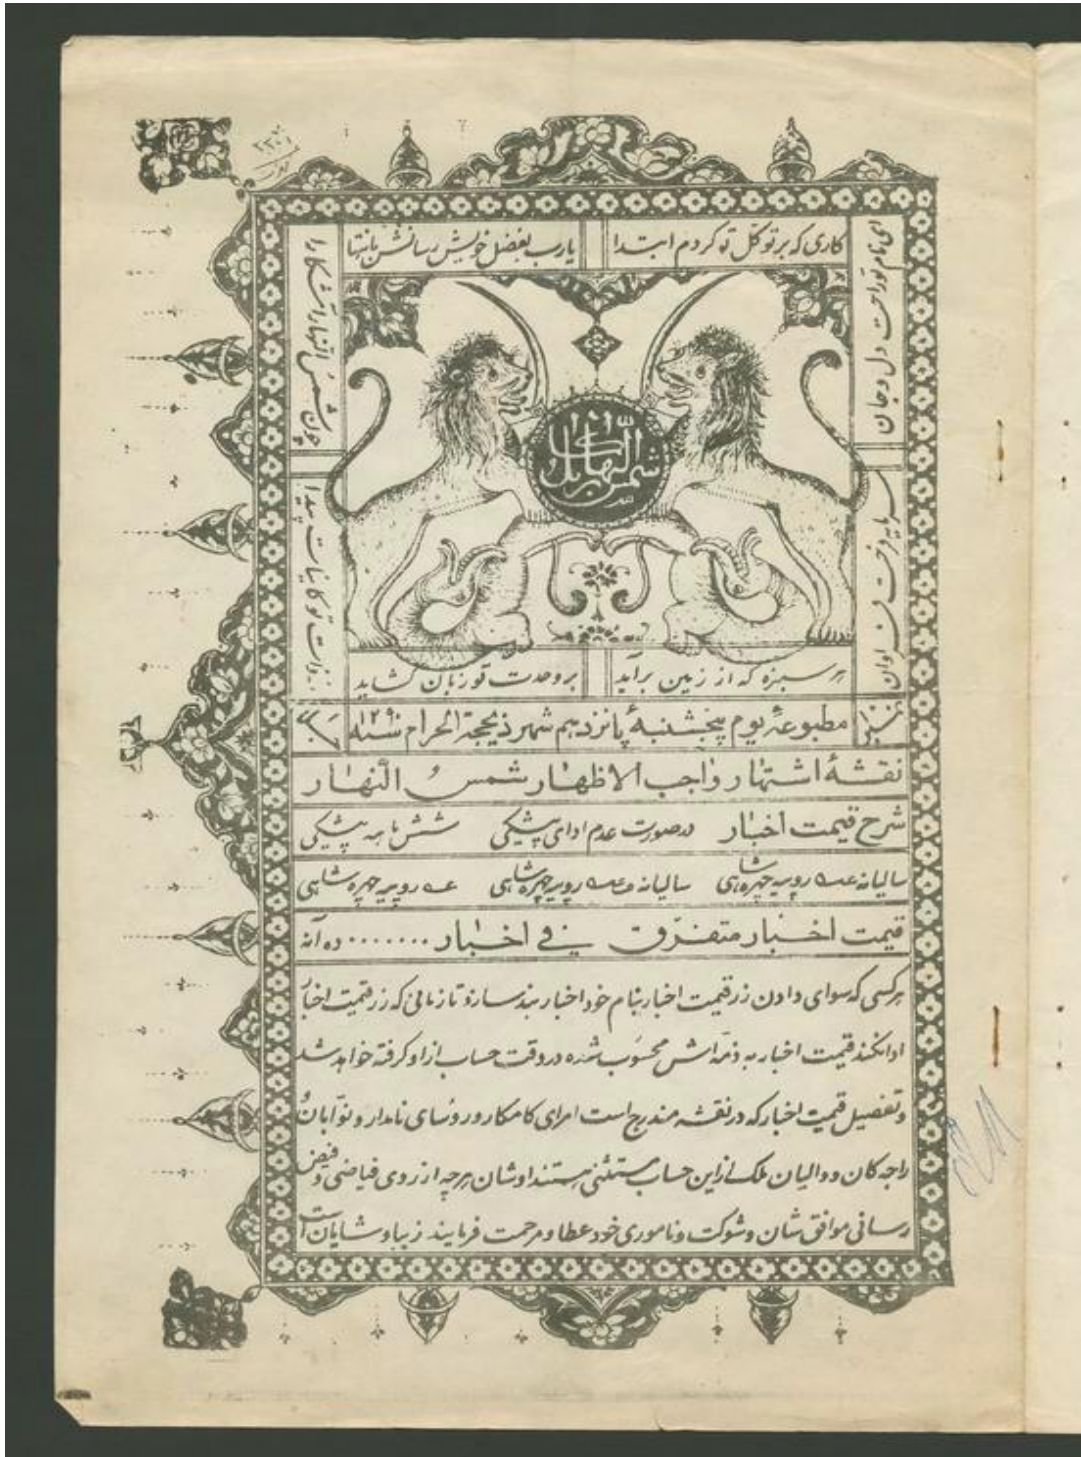 کاری که بر توکل تو کردم ابتدا
یارب بفضل خویش رسانش بانتها
ای نام تو راحت دل و جان
سرمایه فرحت
چون شمس النهار آشکارا
ذات تو کاینات پیدا
شمس النهار کابل
هر سبزه که از زمین برآید
بر وحدت تو زبان گشاید
مطبوعهٔ یوم پنجشنبهٔ پانزدهم شهر ذیحجة الحرام سنه ۱۲۹۰
نقشهٔ اشتهار واجب الاظهار شمس النهار
شرح قیمت اخبار در صورت عدم ادای پیشگی شش ماهه پیشگی
سالیانه روپیه چهره شاهی سالیانه روپیه چهره شاهی روپیه چهره شاهی
قیمت اخبار متفرق فی اخبار ........ ده آنه
هر کسی که سوای دادن زر قیمت اخبار بنام خود اخبار بند سازد تا زمانی که زر قیمت اخبار
ادا نکند قیمت اخبار به ذمه اش محسوب شده در وقت حساب از او گرفته خواهد شد
و تفصیل قیمت اخبار که در نقشه مندرج است امرای کامکار و روسای نامدار و نوّابان
راجه گان و والیان ملک از این حساب مستثنی هستند اوشان هر چه از روی فیاضی و فیض
رسانی موافق شان و شوکت و ناموری خود عطا و مرحمت فرمایند زیبا و شایان است